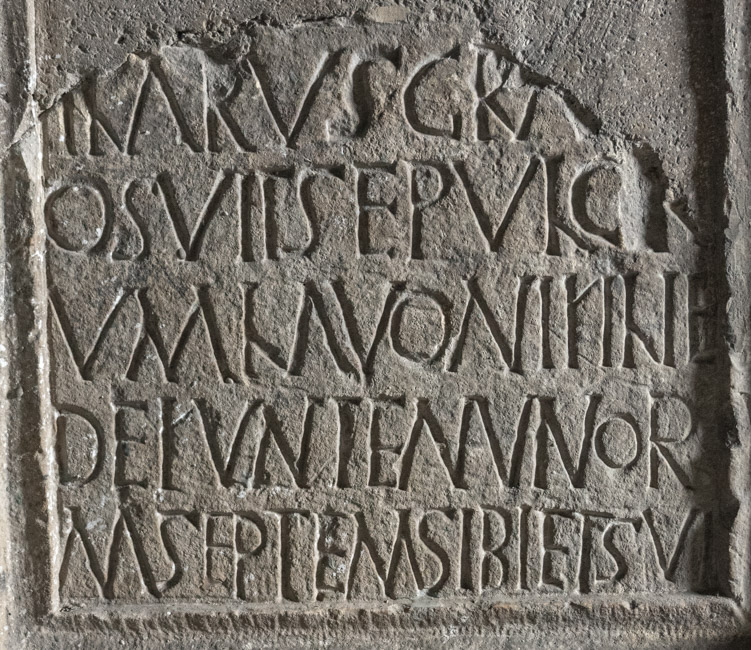 ARVSGR
OSVITSEPVLCR
VMLAVONIFILIE
DEFVNTEANNOR
MSEPTEMSIBIETSVI